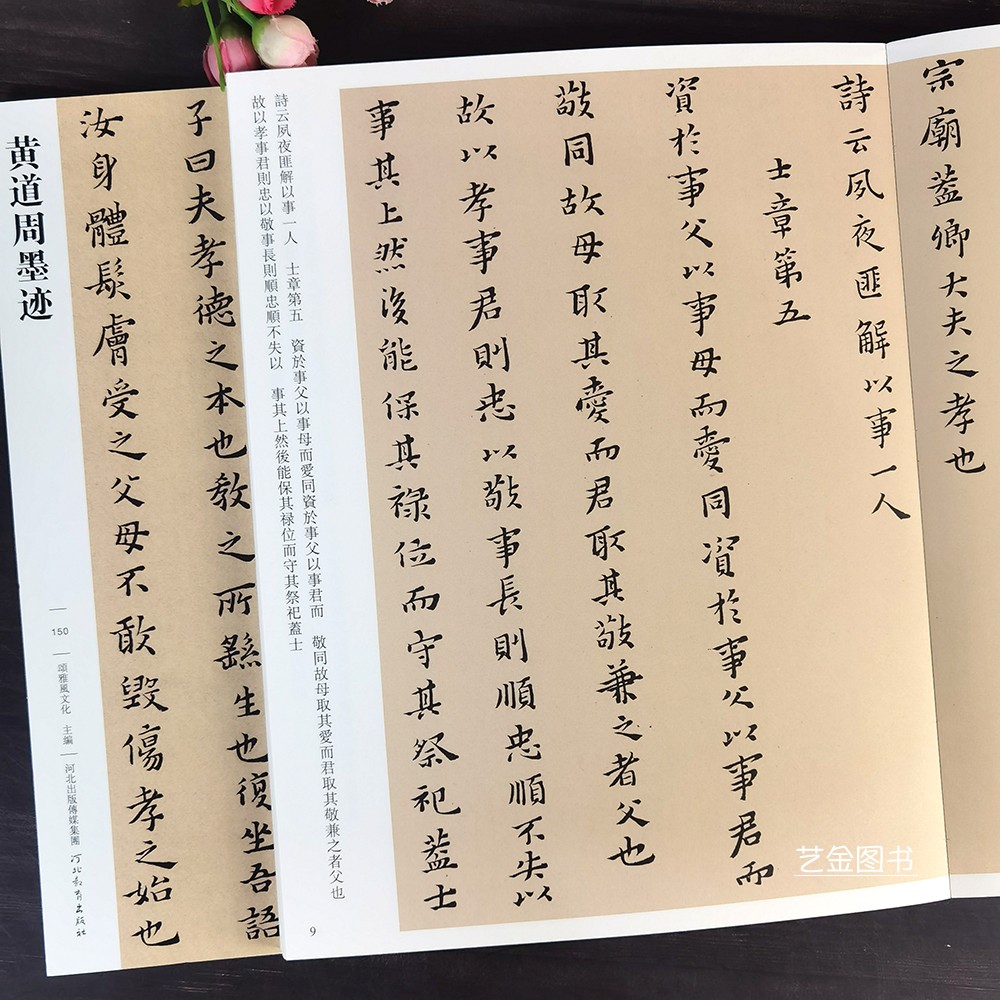 宗廟蓋卿大夫之孝也
詩云夙夜匪解以事一人
士章第五
資於事父以事母而愛同資於事父以事君而
敬同故母取其愛而君取其敬兼之者父也
故以孝事君則忠以敬事長則順忠順不失以
事其上然後能保其祿位而守其祭祀蓋士
詩云夙夜匪解以事一人　士章第五　資於事父以事母而愛同資於事父以事君而　敬同故母取其愛而君取其敬兼之者父也
故以孝事君則忠以敬事長則順忠順不失以　事其上然後能保其禄位而守其祭祀蓋士
9
子曰夫孝德之本也教之所繇生也復坐吾語
汝身體髮膚受之父母不敢毀傷孝之始也
黄道周墨迹
150
頌雅風文化　主編
河北出版傳媒集團
河北教育出版社
艺金图书